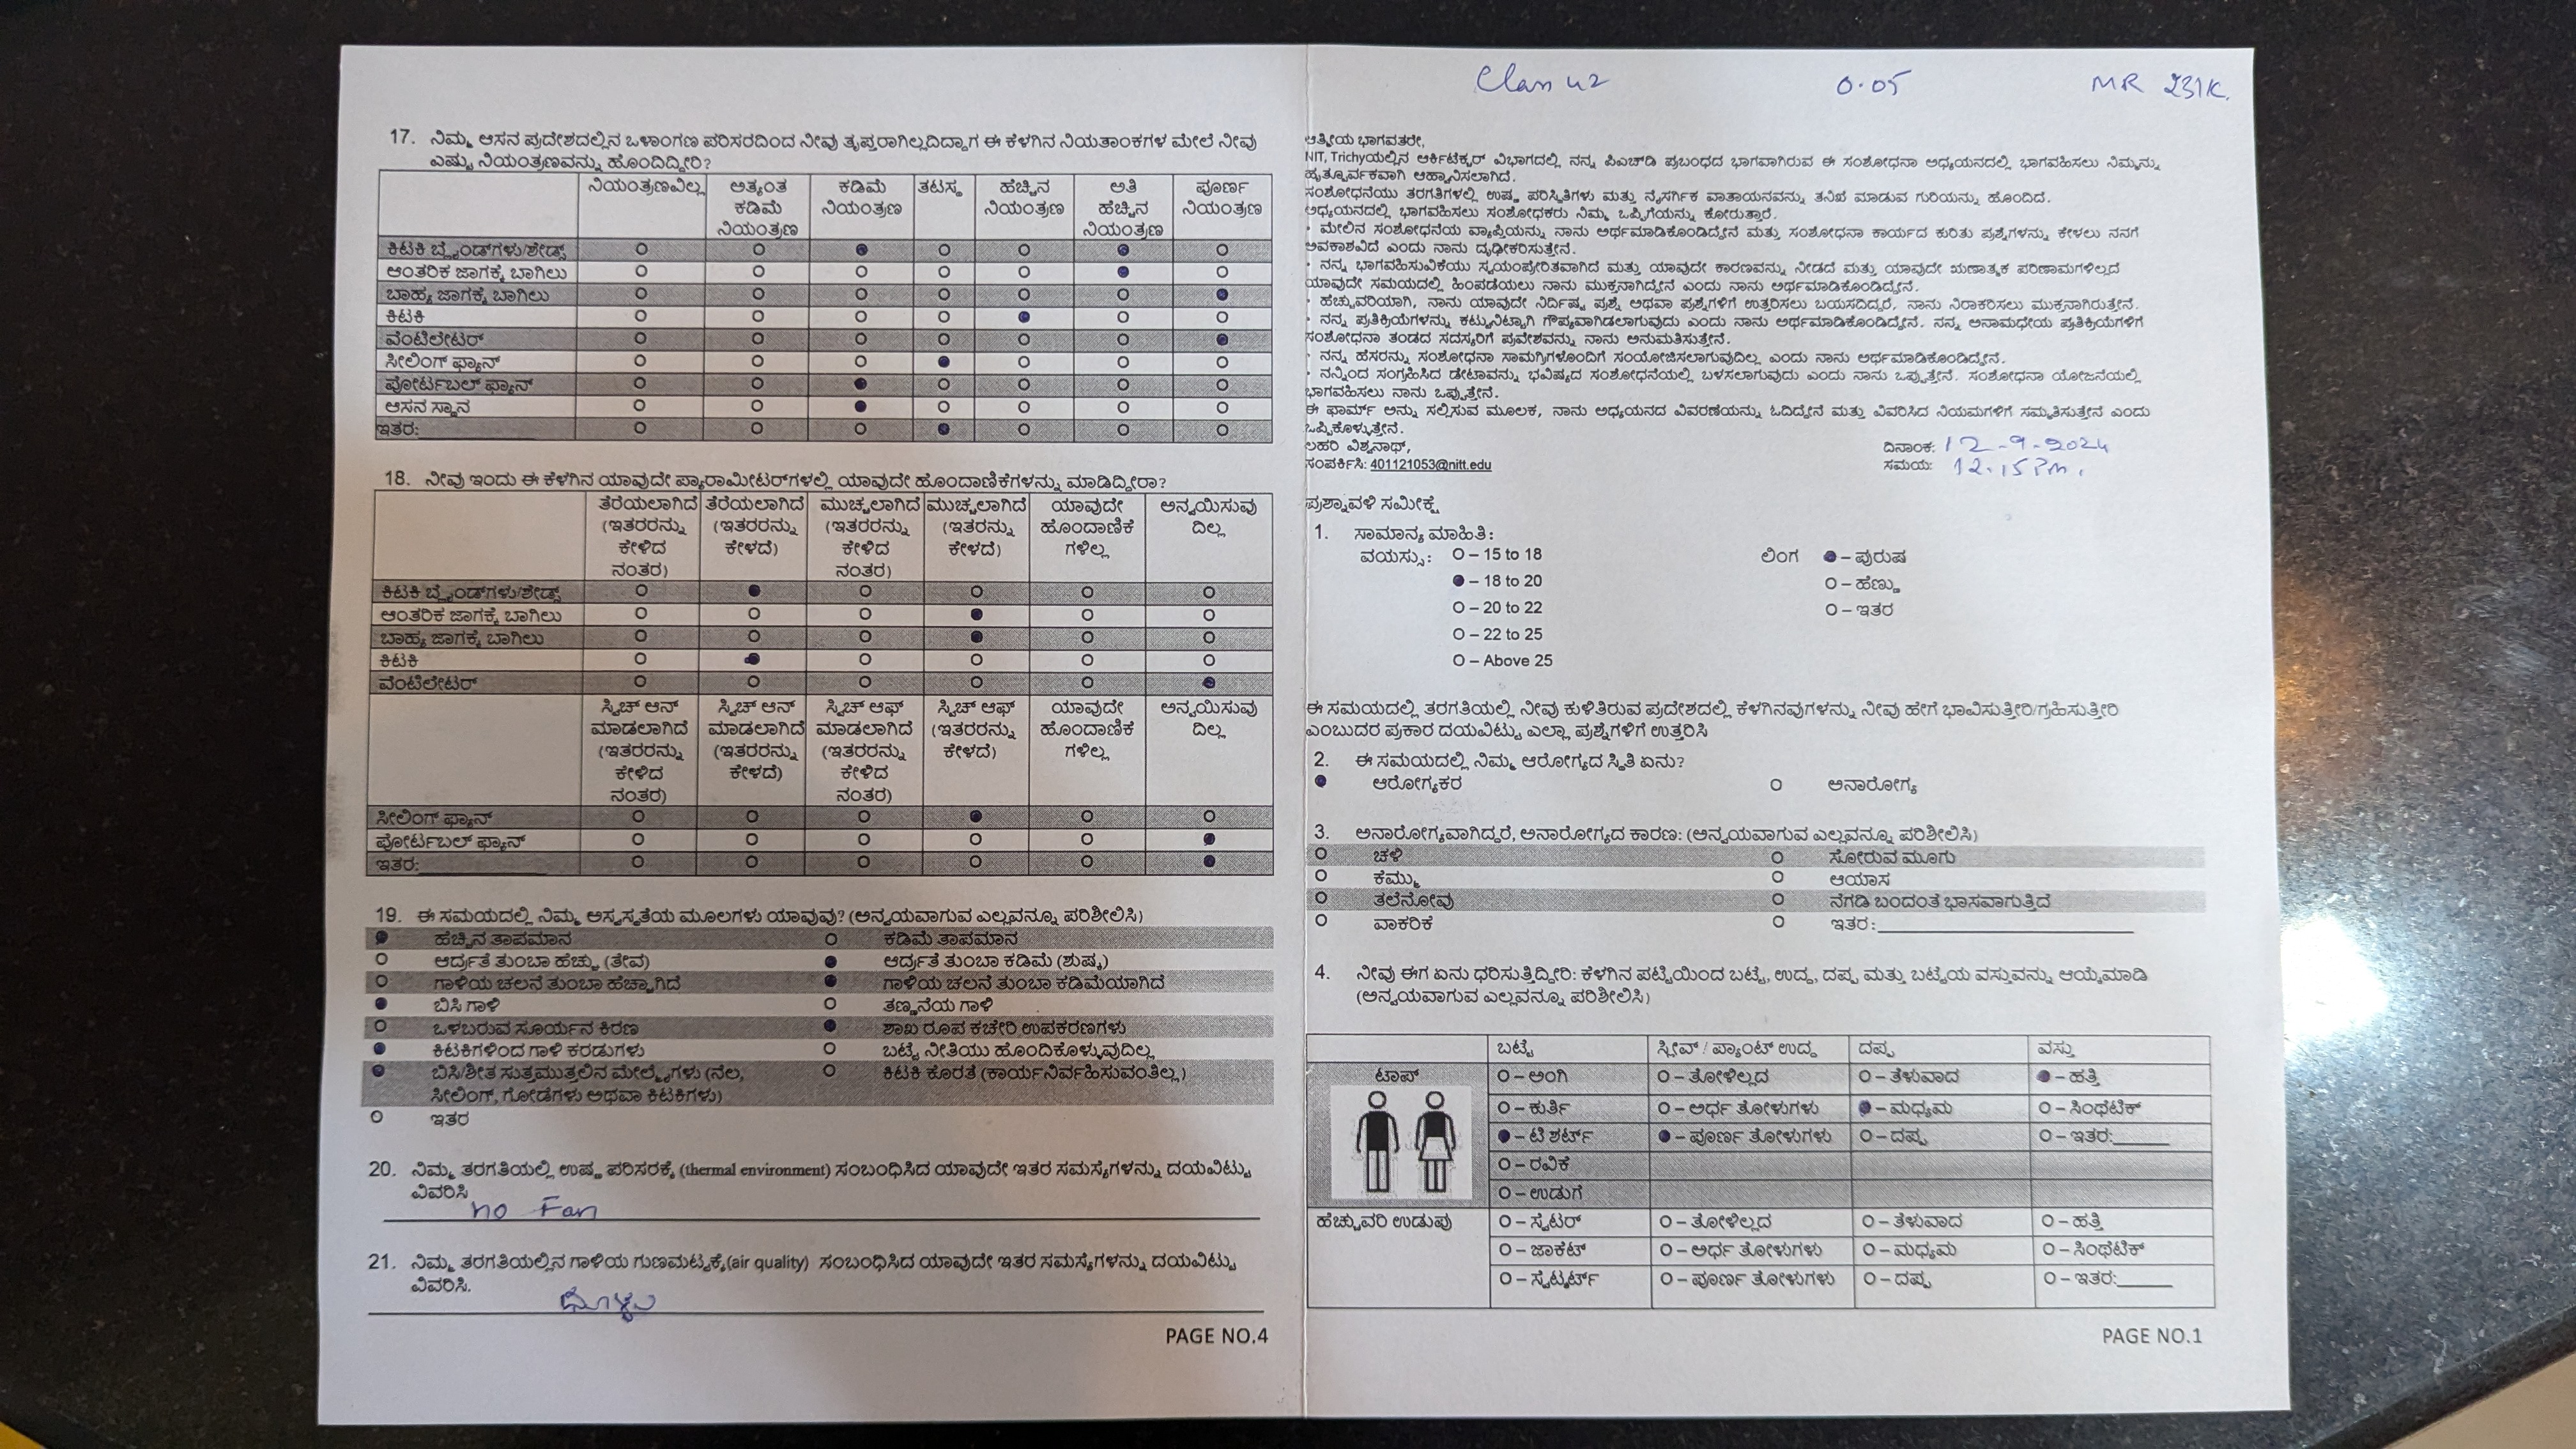 17. ನಿಮ್ಮ ಆಸನ ಪ್ರದೇಶದಲ್ಲಿನ ಒಳಾಂಗಣ ಪರಿಸರದಿಂದ ನೀವು ತೃಪ್ತರಾಗಿಲ್ಲದಿದ್ದಾಗ ಈ ಕೆಳಗಿನ ನಿಯತಾಂಕಗಳ ಮೇಲೆ ನೀವು
ಎಷ್ಟು ನಿಯಂತ್ರಣವನ್ನು ಹೊಂದಿದ್ದೀರಿ?
ನಿಯಂತ್ರಣವಿಲ್ಲ ಅತ್ಯಂತ ಕಡಿಮೆ ನಿಯಂತ್ರಣ ಕಡಿಮೆ ನಿಯಂತ್ರಣ ತಟಸ್ಥ ಹೆಚ್ಚಿನ ನಿಯಂತ್ರಣ ಅತಿ ಹೆಚ್ಚಿನ ನಿಯಂತ್ರಣ ಪೂರ್ಣ ನಿಯಂತ್ರಣ
ಕಿಟಕಿ ಬ್ಲೈಂಡ್‌ಗಳು/ಶೇಡ್ಸ್
ಆಂತರಿಕ ಜಾಗಕ್ಕೆ ಬಾಗಿಲು
ಬಾಹ್ಯ ಜಾಗಕ್ಕೆ ಬಾಗಿಲು
ಕಿಟಕಿ
ವೆಂಟಿಲೇಟರ್
ಸೀಲಿಂಗ್ ಫ್ಯಾನ್
ಪೋರ್ಟಬಲ್ ಫ್ಯಾನ್
ಆಸನ ಸ್ಥಾನ
ಇತರ:
18. ನೀವು ಇಂದು ಈ ಕೆಳಗಿನ ಯಾವುದೇ ಪ್ಯಾರಾಮೀಟರ್‌ಗಳಲ್ಲಿ ಯಾವುದೇ ಹೊಂದಾಣಿಕೆಗಳನ್ನು ಮಾಡಿದ್ದೀರಾ?
ತೆರೆಯಲಾಗಿದೆ (ಇತರರನ್ನು ಕೇಳಿದ ನಂತರ) ತೆರೆಯಲಾಗಿದೆ (ಇತರರನ್ನು ಕೇಳದೆ) ಮುಚ್ಚಲಾಗಿದೆ (ಇತರರನ್ನು ಕೇಳಿದ ನಂತರ) ಮುಚ್ಚಲಾಗಿದೆ (ಇತರನ್ನು ಕೇಳದೆ) ಯಾವುದೇ ಹೊಂದಾಣಿಕೆ ಗಳಿಲ್ಲ ಅನ್ವಯಿಸುವು ದಿಲ್ಲ
ಕಿಟಕಿ ಬ್ಲೈಂಡ್‌ಗಳು/ಶೇಡ್ಸ್
ಆಂತರಿಕ ಜಾಗಕ್ಕೆ ಬಾಗಿಲು
ಬಾಹ್ಯ ಜಾಗಕ್ಕೆ ಬಾಗಿಲು
ಕಿಟಕಿ
ವೆಂಟಿಲೇಟರ್
ಸ್ವಿಚ್ ಆನ್ ಮಾಡಲಾಗಿದೆ (ಇತರರನ್ನು ಕೇಳಿದ ನಂತರ) ಸ್ವಿಚ್ ಆನ್ ಮಾಡಲಾಗಿದೆ (ಇತರರನ್ನು ಕೇಳದೆ) ಸ್ವಿಚ್ ಆಫ್ ಮಾಡಲಾಗಿದೆ (ಇತರರನ್ನು ಕೇಳಿದ ನಂತರ) ಸ್ವಿಚ್ ಆಫ್ (ಇತರರನ್ನು ಕೇಳದೆ) ಯಾವುದೇ ಹೊಂದಾಣಿಕೆ ಗಳಿಲ್ಲ ಅನ್ವಯಿಸುವು ದಿಲ್ಲ
ಸೀಲಿಂಗ್ ಫ್ಯಾನ್
ಪೋರ್ಟಬಲ್ ಫ್ಯಾನ್
ಇತರ:
19. ಈ ಸಮಯದಲ್ಲಿ ನಿಮ್ಮ ಅಸ್ವಸ್ಥತೆಯ ಮೂಲಗಳು ಯಾವುವು? (ಅನ್ವಯವಾಗುವ ಎಲ್ಲವನ್ನೂ ಪರಿಶೀಲಿಸಿ)
ಹೆಚ್ಚಿನ ತಾಪಮಾನ ಕಡಿಮೆ ತಾಪಮಾನ
ಆರ್ದ್ರತೆ ತುಂಬಾ ಹೆಚ್ಚು (ತೇವ) ಆರ್ದ್ರತೆ ತುಂಬಾ ಕಡಿಮೆ (ಶುಷ್ಕ)
ಗಾಳಿಯ ಚಲನೆ ತುಂಬಾ ಹೆಚ್ಚಾಗಿದೆ ಗಾಳಿಯ ಚಲನೆ ತುಂಬಾ ಕಡಿಮೆಯಾಗಿದೆ
ಬಿಸಿ ಗಾಳಿ ತಣ್ಣನೆಯ ಗಾಳಿ
ಒಳಬರುವ ಸೂರ್ಯನ ಕಿರಣ ಶಾಖ ರೂಪ ಕಚೇರಿ ಉಪಕರಣಗಳು
ಕಿಟಕಿಗಳಿಂದ ಗಾಳಿ ಕರಡುಗಳು ಬಟ್ಟೆ ನೀತಿಯು ಹೊಂದಿಕೊಳ್ಳುವುದಿಲ್ಲ
ಬಿಸಿ/ಶೀತ ಸುತ್ತಮುತ್ತಲಿನ ಮೇಲ್ಮೈಗಳು (ನೆಲ, ಕಿಟಕಿ ಕೊರತೆ (ಕಾರ್ಯನಿರ್ವಹಿಸುವಂತಿಲ್ಲ)
ಸೀಲಿಂಗ್, ಗೋಡೆಗಳು ಅಥವಾ ಕಿಟಕಿಗಳು)
ಇತರ
20. ನಿಮ್ಮ ತರಗತಿಯಲ್ಲಿ ಉಷ್ಣ ಪರಿಸರಕ್ಕೆ (thermal environment) ಸಂಬಂಧಿಸಿದ ಯಾವುದೇ ಇತರ ಸಮಸ್ಯೆಗಳನ್ನು ದಯವಿಟ್ಟು
ವಿವರಿಸಿ
no Fan
21. ನಿಮ್ಮ ತರಗತಿಯಲ್ಲಿನ ಗಾಳಿಯ ಗುಣಮಟ್ಟಕ್ಕೆ(air quality) ಸಂಬಂಧಿಸಿದ ಯಾವುದೇ ಇತರ ಸಮಸ್ಯೆಗಳನ್ನು ದಯವಿಟ್ಟು
ವಿವರಿಸಿ.
PAGE NO.4
0.05 MR 231K.
ಆತ್ಮೀಯ ಭಾಗವತರೇ,
NIT, Trichyಯಲ್ಲಿನ ಆರ್ಕಿಟೆಕ್ಚರ್ ವಿಭಾಗದಲ್ಲಿ ನನ್ನ ಪಿಎಚ್‌ಡಿ ಪ್ರಬಂಧದ ಭಾಗವಾಗಿರುವ ಈ ಸಂಶೋಧನಾ ಅಧ್ಯಯನದಲ್ಲಿ ಭಾಗವಹಿಸಲು ನಿಮ್ಮನ್ನು
ಹೃತ್ಪೂರ್ವಕವಾಗಿ ಆಹ್ವಾನಿಸಲಾಗಿದೆ.
ಸಂಶೋಧನೆಯು ತರಗತಿಗಳಲ್ಲಿ ಉಷ್ಣ ಪರಿಸ್ಥಿತಿಗಳು ಮತ್ತು ನೈಸರ್ಗಿಕ ವಾತಾಯನವನ್ನು ತನಿಖೆ ಮಾಡುವ ಗುರಿಯನ್ನು ಹೊಂದಿದೆ.
ಅಧ್ಯಯನದಲ್ಲಿ ಭಾಗವಹಿಸಲು ಸಂಶೋಧಕರು ನಿಮ್ಮ ಒಪ್ಪಿಗೆಯನ್ನು ಕೋರುತ್ತಾರೆ.
• ಮೇಲಿನ ಸಂಶೋಧನೆಯ ವ್ಯಾಪ್ತಿಯನ್ನು ನಾನು ಅರ್ಥಮಾಡಿಕೊಂಡಿದ್ದೇನೆ ಮತ್ತು ಸಂಶೋಧನಾ ಕಾರ್ಯದ ಕುರಿತು ಪ್ರಶ್ನೆಗಳನ್ನು ಕೇಳಲು ನನಗೆ
ಅವಕಾಶವಿದೆ ಎಂದು ನಾನು ದೃಢೀಕರಿಸುತ್ತೇನೆ.
• ನನ್ನ ಭಾಗವಹಿಸುವಿಕೆಯು ಸ್ವಯಂಪ್ರೇರಿತವಾಗಿದೆ ಮತ್ತು ಯಾವುದೇ ಕಾರಣವನ್ನು ನೀಡದೆ ಮತ್ತು ಯಾವುದೇ ಋಣಾತ್ಮಕ ಪರಿಣಾಮಗಳಿಲ್ಲದೆ
ಯಾವುದೇ ಸಮಯದಲ್ಲಿ ಹಿಂಪಡೆಯಲು ನಾನು ಮುಕ್ತನಾಗಿದ್ದೇನೆ ಎಂದು ನಾನು ಅರ್ಥಮಾಡಿಕೊಂಡಿದ್ದೇನೆ.
• ಹೆಚ್ಚುವರಿಯಾಗಿ, ನಾನು ಯಾವುದೇ ನಿರ್ದಿಷ್ಟ ಪ್ರಶ್ನೆ ಅಥವಾ ಪ್ರಶ್ನೆಗಳಿಗೆ ಉತ್ತರಿಸಲು ಬಯಸದಿದ್ದರೆ, ನಾನು ನಿರಾಕರಿಸಲು ಮುಕ್ತನಾಗಿರುತ್ತೇನೆ.
• ನನ್ನ ಪ್ರತಿಕ್ರಿಯೆಗಳನ್ನು ಕಟ್ಟುನಿಟ್ಟಾಗಿ ಗೌಪ್ಯವಾಗಿಡಲಾಗುವುದು ಎಂದು ನಾನು ಅರ್ಥಮಾಡಿಕೊಂಡಿದ್ದೇನೆ. ನನ್ನ ಅನಾಮಧೇಯ ಪ್ರತಿಕ್ರಿಯೆಗಳಿಗೆ
ಸಂಶೋಧನಾ ತಂಡದ ಸದಸ್ಯರಿಗೆ ಪ್ರವೇಶವನ್ನು ನಾನು ಅನುಮತಿಸುತ್ತೇನೆ.
• ನನ್ನ ಹೆಸರನ್ನು ಸಂಶೋಧನಾ ಸಾಮಗ್ರಿಗಳೊಂದಿಗೆ ಸಂಯೋಜಿಸಲಾಗುವುದಿಲ್ಲ ಎಂದು ನಾನು ಅರ್ಥಮಾಡಿಕೊಂಡಿದ್ದೇನೆ.
• ನನ್ನಿಂದ ಸಂಗ್ರಹಿಸಿದ ಡೇಟಾವನ್ನು ಭವಿಷ್ಯದ ಸಂಶೋಧನೆಯಲ್ಲಿ ಬಳಸಲಾಗುವುದು ಎಂದು ನಾನು ಒಪ್ಪುತ್ತೇನೆ. ಸಂಶೋಧನಾ ಯೋಜನೆಯಲ್ಲಿ
ಭಾಗವಹಿಸಲು ನಾನು ಒಪ್ಪುತ್ತೇನೆ.
ಈ ಫಾರ್ಮ್ ಅನ್ನು ಸಲ್ಲಿಸುವ ಮೂಲಕ, ನಾನು ಅಧ್ಯಯನದ ವಿವರಣೆಯನ್ನು ಓದಿದ್ದೇನೆ ಮತ್ತು ವಿವರಿಸಿದ ನಿಯಮಗಳಿಗೆ ಸಮ್ಮತಿಸುತ್ತೇನೆ ಎಂದು
ಒಪ್ಪಿಕೊಳ್ಳುತ್ತೇನೆ.
ಲಹರಿ ವಿಶ್ವನಾಥ್, ದಿನಾಂಕ: 12-9-2024
ಸಂಪರ್ಕಿಸಿ: 401121053@nitt.edu ಸಮಯ: 12.15 Pm.
ಪ್ರಶ್ನಾವಳಿ ಸಮೀಕ್ಷೆ
1. ಸಾಮಾನ್ಯ ಮಾಹಿತಿ:
ವಯಸ್ಸು: O – 15 to 18 ಲಿಂಗ – ಪುರುಷ
– 18 to 20 O – ಹೆಣ್ಣು
O – 20 to 22 O – ಇತರ
O – 22 to 25
O – Above 25
ಈ ಸಮಯದಲ್ಲಿ ತರಗತಿಯಲ್ಲಿ ನೀವು ಕುಳಿತಿರುವ ಪ್ರದೇಶದಲ್ಲಿ ಕೆಳಗಿನವುಗಳನ್ನು ನೀವು ಹೇಗೆ ಭಾವಿಸುತ್ತೀರಿ/ಗ್ರಹಿಸುತ್ತೀರಿ
ಎಂಬುದರ ಪ್ರಕಾರ ದಯವಿಟ್ಟು ಎಲ್ಲಾ ಪ್ರಶ್ನೆಗಳಿಗೆ ಉತ್ತರಿಸಿ
2. ಈ ಸಮಯದಲ್ಲಿ ನಿಮ್ಮ ಆರೋಗ್ಯದ ಸ್ಥಿತಿ ಏನು?
ಆರೋಗ್ಯಕರ ಅನಾರೋಗ್ಯ
3. ಅನಾರೋಗ್ಯವಾಗಿದ್ದರೆ, ಅನಾರೋಗ್ಯದ ಕಾರಣ: (ಅನ್ವಯವಾಗುವ ಎಲ್ಲವನ್ನೂ ಪರಿಶೀಲಿಸಿ)
ಚಳಿ ಸೋರುವ ಮೂಗು
ಕೆಮ್ಮು ಆಯಾಸ
ತಲೆನೋವು ನೆಗಡಿ ಬಂದಂತೆ ಭಾಸವಾಗುತ್ತಿದೆ
ವಾಕರಿಕೆ ಇತರ:
4. ನೀವು ಈಗ ಏನು ಧರಿಸುತ್ತಿದ್ದೀರಿ: ಕೆಳಗಿನ ಪಟ್ಟಿಯಿಂದ ಬಟ್ಟೆ, ಉದ್ದ, ದಪ್ಪ ಮತ್ತು ಬಟ್ಟೆಯ ವಸ್ತುವನ್ನು ಆಯ್ಕೆಮಾಡಿ
(ಅನ್ವಯವಾಗುವ ಎಲ್ಲವನ್ನೂ ಪರಿಶೀಲಿಸಿ)
ಬಟ್ಟೆ ಸ್ಲೀವ್ / ಪ್ಯಾಂಟ್ ಉದ್ದ ದಪ್ಪ ವಸ್ತು
ಟಾಪ್ O – ಅಂಗಿ O – ತೋಳಿಲ್ಲದ O – ತೆಳುವಾದ – ಹತ್ತಿ
O – ಕುರ್ತಿ O – ಅರ್ಧ ತೋಳುಗಳು – ಮಧ್ಯಮ O – ಸಿಂಥೆಟಿಕ್
– ಟಿ ಶರ್ಟ್ – ಪೂರ್ಣ ತೋಳುಗಳು O – ದಪ್ಪ O – ಇತರ:
O – ರವಿಕೆ
O – ಉಡುಗೆ
ಹೆಚ್ಚುವರಿ ಉಡುಪು O – ಸ್ವೆಟರ್ O – ತೋಳಿಲ್ಲದ O – ತೆಳುವಾದ O – ಹತ್ತಿ
O – ಜಾಕೆಟ್ O – ಅರ್ಧ ತೋಳುಗಳು O – ಮಧ್ಯಮ O – ಸಿಂಥೆಟಿಕ್
O – ಸ್ವೆಟ್ಶರ್ಟ್ O – ಪೂರ್ಣ ತೋಳುಗಳು O – ದಪ್ಪ O – ಇತರ:
PAGE NO.1